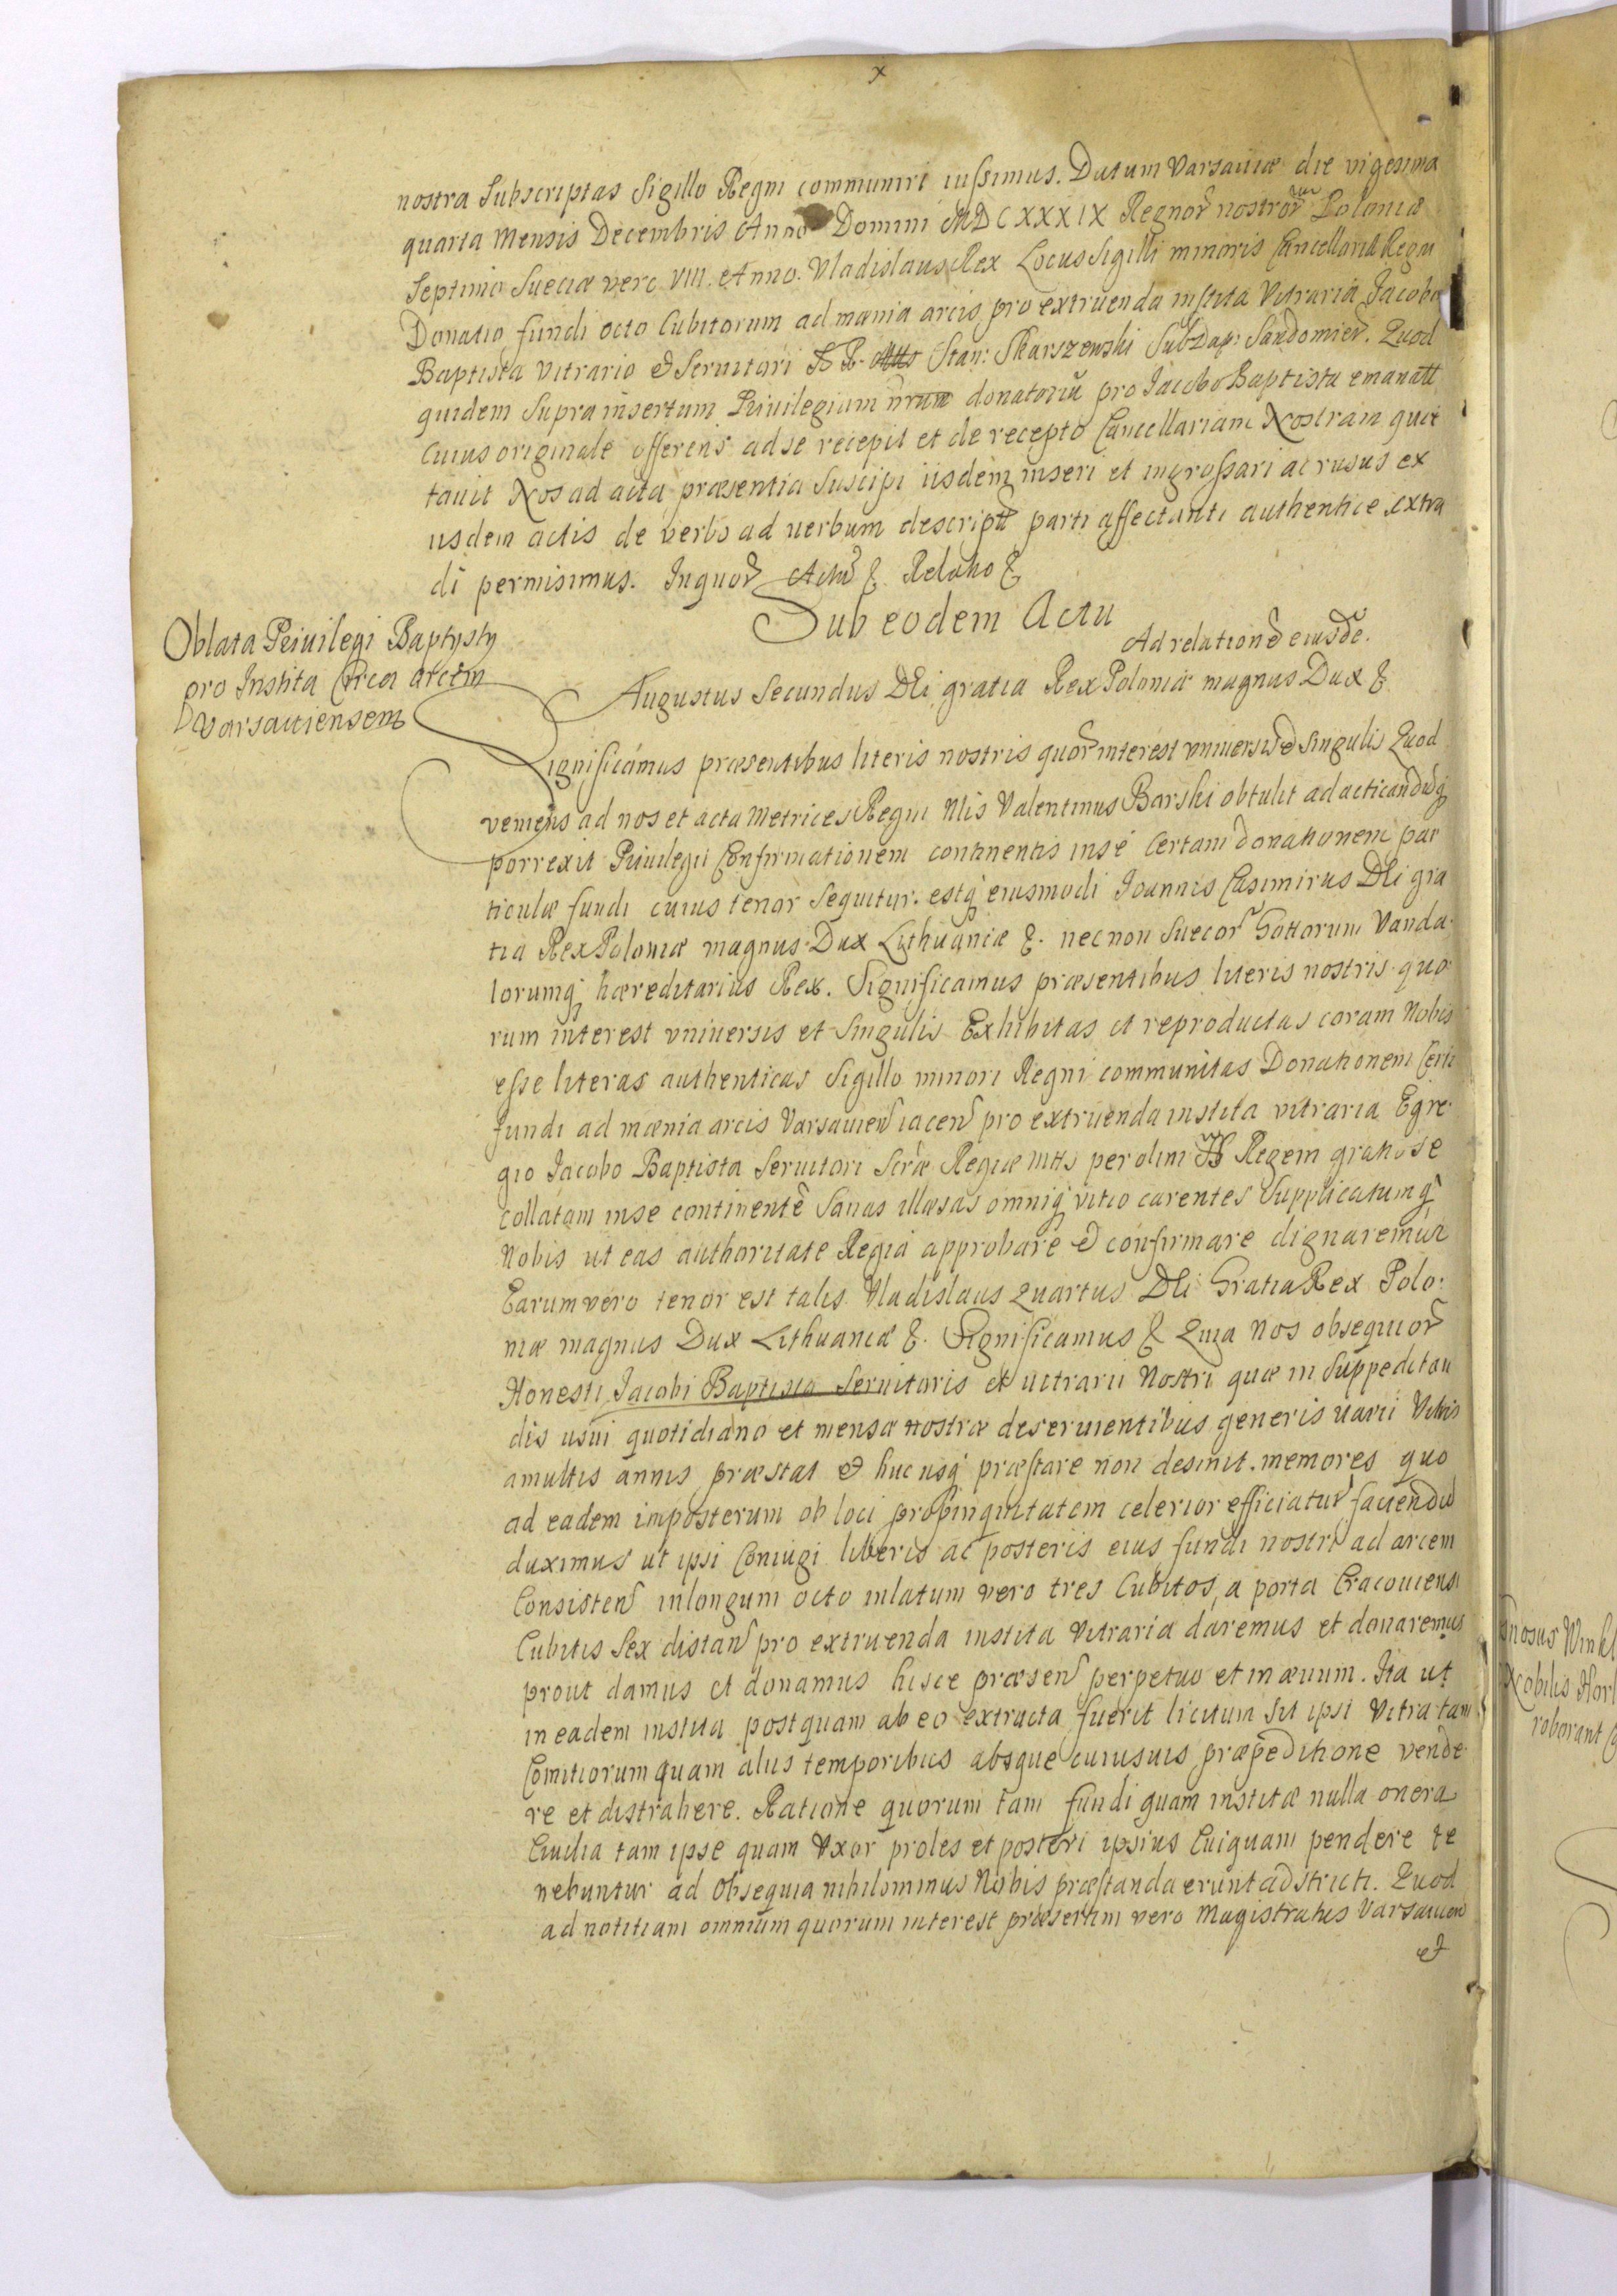 x
nostra Subscriptas Sigillo Regni communiri iussimus. Datum Varsaviæ die vigesima
quarta Mensis Decembris Anno Domini MDCXXXIX Regnor̃ nostror̃ Poloniæ
Septimo Sueciæ vero VIII. Anno. Vladislaus Rex Locus Sigilli minoris Cancellariæ Regni
Donatio fundi octo Cubitorum ad mænia arcis pro extruenda instita Vitraria Jacobo
Baptista Vitrario & Servitori Stan: Skarszewski SubDap: Sandomier̃. Quod
quidem Supra insertum Privilegium donatoriũ pro Jacobo Baptista emanatt
Cuius originale offerens ad se recepit et de recepto Cancellariam Nostram quie
tavit Nos ad acta præsentia Suscipi iisdem inseri et ingrossari ac rusus ex
iisdem actis de verbo ad verbum descriptũ parti affectanti authentice extra
di permisimus. In quor̃ Actũ & Relatio &
Sub eodem Actu
Ad relationẽ eiusdẽ.
Oblata Privilegi Baptysty
pro Instita Circa arcem
Varsaviensem
Augustus Secundus DEi gratia Rex Poloniæ magnus Dux &
Significamus præsentibus literis nostris quor̃ interest vniversis & Singulis Quod
veniens ad nos et acta Metrices Regni Nlis Valentinus Barski obtulit ad acticandũq
porrexit Privilegii Confirmationem continentis in sé Certam donationem par
ticulæ fundi cuius tenor Sequitur. estq eiusmodi Joannis Casimirus DEi gra
tia Rex Poloniæ magnus Dux Lithuaniæ &. nec non Suecor̃ Gottorum Vanda-
lorumq hæreditarius Rex. Significamus præsentibus literis nostris quo
rum interest vniversis et Singulis Exhibitas et reproductas coram Nobis
esse literas authenticas Sigillo minori Regni communitas Donationem Certi
fundi ad mænia arcis Varsavien̄ iacen̄ pro extruenda instita vitraria Egre-
gio Jacobo Baptista Servitori Scræ Regiæ Mtts per olim Regem gratiose
collatam in se continentẽ Sanas illæsas omniq vitio carentes Supplicatumq
Nobis ut eas authoritate Regia approbare & confirmare dignaremur
Earum vero tenor est talis Vladislaus Quartus DEi Gratia Rex Polo:
niæ magnus Dux Lithuaniæ &. Significamus & Quia Nos obsequior̃
Honesti Jacobi Baptista Servitoris et vitrarii Nostri quæ in Suppeditan
dis usui quotidiano et mensæ nostræ deservientibus generis varii Vitris
a multis annis præstat & huc usq præstare non desinit. memores quo
ad eadem imposterum ob loci propinquitatem celerior efficiatur faciendũ
duximus ut ipsi Coniugi liberis ac posteris eius fundi nostri ad arcem
Consisten̄ in longum octo in latum vero tres Cubitos, a porta Cracoviensi
Cubitis Sex distan̄ pro extruenda instita Vitraria daremus et donaremus
prout damus et donamus hisce præsen̄ perpetuo et in ævum. Ita ut
in eadem instita postquam ab eo extructa fuerit licitum sit ipsi Vitra tam
Comitiorum quam aliis temporibus absque cuiusvis præpeditione vende-
re et distrahere. Ratione quorum tam fundi quam institæ nulla onera
Civilia tam ipse quam Vxor proles et posteri ipsius Cuiquam pendere te
nebuntur ad Obsequia nihilominus Nobis præstanda erunt adstricti. Quod
ad notitiam omnium quorum interest præsertim vero Magistratus Varsavien̄
et
Winkl
Nobilis
roborant